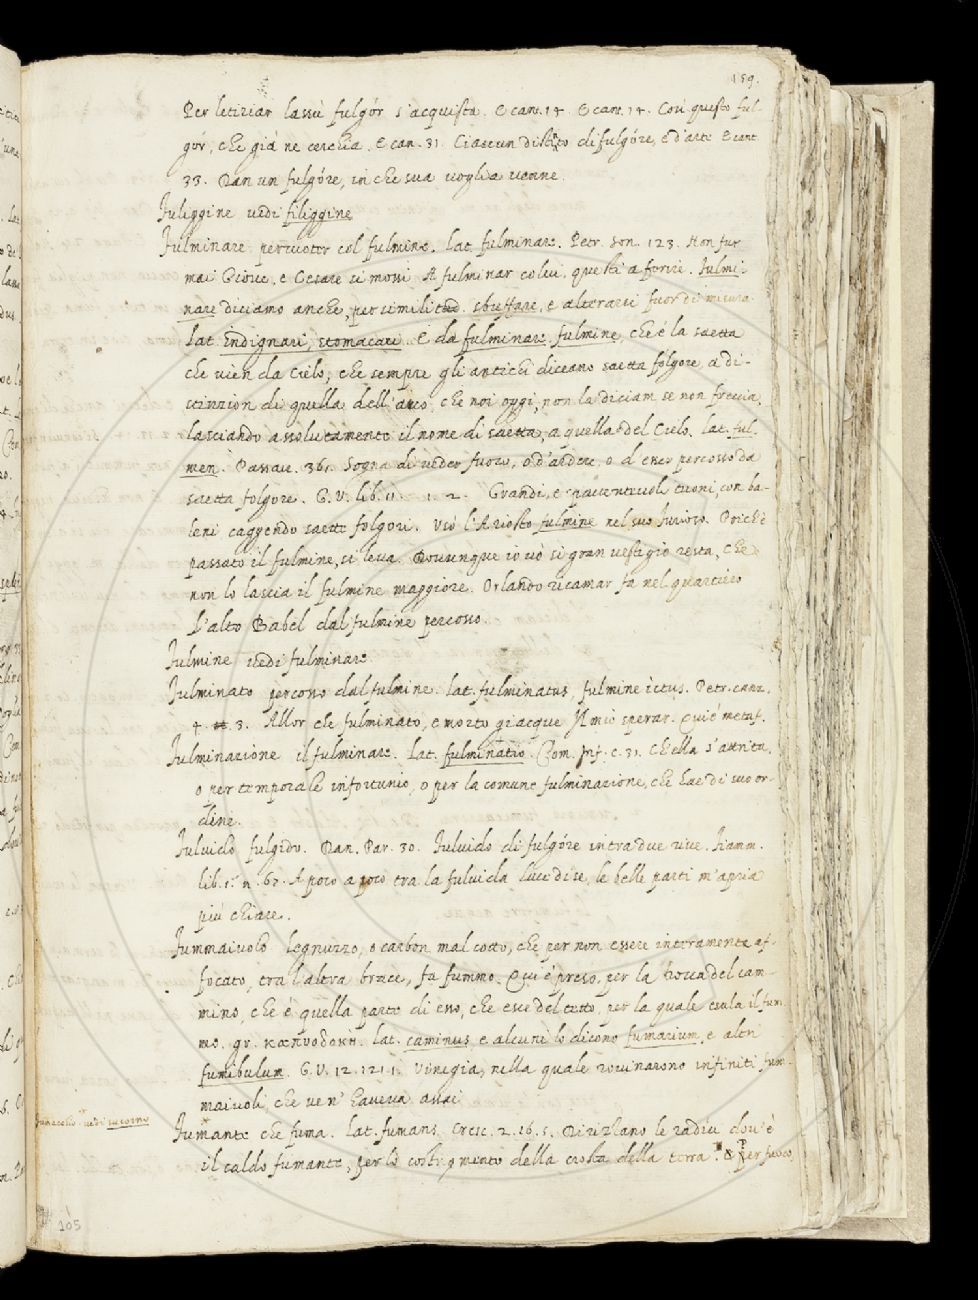 159.
Per letiziar lassù fulgór s'acquista. E cant. 14. E cant. 14. Così questo ful-
gór, che già ne cerchia. E can. 31. Ciascun distito di fulgóre, e d'arte E cant.
33. Dan un fulgóre, in che sua voglia venne.
Fuliggine vedi filiggine
Fulminare percuoter col fulmine. Lat. fulminare. Petr. son. 123. Non fur
mai Giove, e Cesare sì mossi A fulminar colui, questi a ferire. Fulmi-
nare diciamo anche, per similitud. sbuffare, e alterarsi fuor di misura.
Lat. indignari, stomacari. E da fulminare, fulmine, che è la saetta
che vien da Cielo, che sempre gli antichi diceano saetta folgore, a di-
stinzion di quella dell'arco, che noi oggi, non la diciam se non freccia,
lasciando assolutamente il nome di saetta, a quella del Cielo. Lat. ful-
men. Passav. 361. Sogna di veder fuoco, o d'ardere, o d'esser percosso da
saetta folgore. G. V. lib. 11. 1. 2. Grandi, e spaventevoli tuoni, con ba-
leni caggendo saette folgori. Usò l'Ariosto fulmine nel suo furioso. Poichè
passato il fulmine, si leva. Dovunque io vò sì gran vestigio resta, Che
non lo lascia il fulmine maggiore. Orlando ricamar fa nel quartiero
L'alto Babel dal fulmine percosso.
Fulmine vedi fulminare.
Fulminato percosso dal fulmine. Lat. fulminatus, fulmine ictus. Petr. canz.
4. 3. Allor che fulminato, e morto giacque Il mio sperar. Qui è metaf.
Fulminazione il fulminare. Lat. fulminatio. Com. Inf. c. 31. Ch'ella s'attrita,
o per temporale infortunio, o per la comune fulminazione, che hae di suo or-
dine.
Fulvido fulgido. Dan. Par. 30. Fulvido di fulgóre intra due rive. Fiamm.
lib. 1. n. 62. A poco a poco tra la fulvida luce di se, le belle parti m'apria
più chiare.
Fummaivolo Legnuzzo, o carbon mal cotto, che per non essere interamente af-
focato, tra l'altra brace, fa fummo. Qui è preso, per la rocca del cam-
mino, che è quella parte di esso, che esce del tetto, per la quale esala il fum-
mo. gr. καπνοδοκη. Lat. caminus, e alcuni lo dicono fumarium, e altri
fumibulum. G. V. 12. 121. 1. Vinegia, nella quale rovinarono infiniti fum-
maivoli, che ven'haveva assai
vedi
Fumante che fuma. Lat. fumans. Cresc. 2. 16. 5. Rivelano le radici dov'è
il caldo fumante, per lo costrignimento della crosta della terra. E per fuoco
105